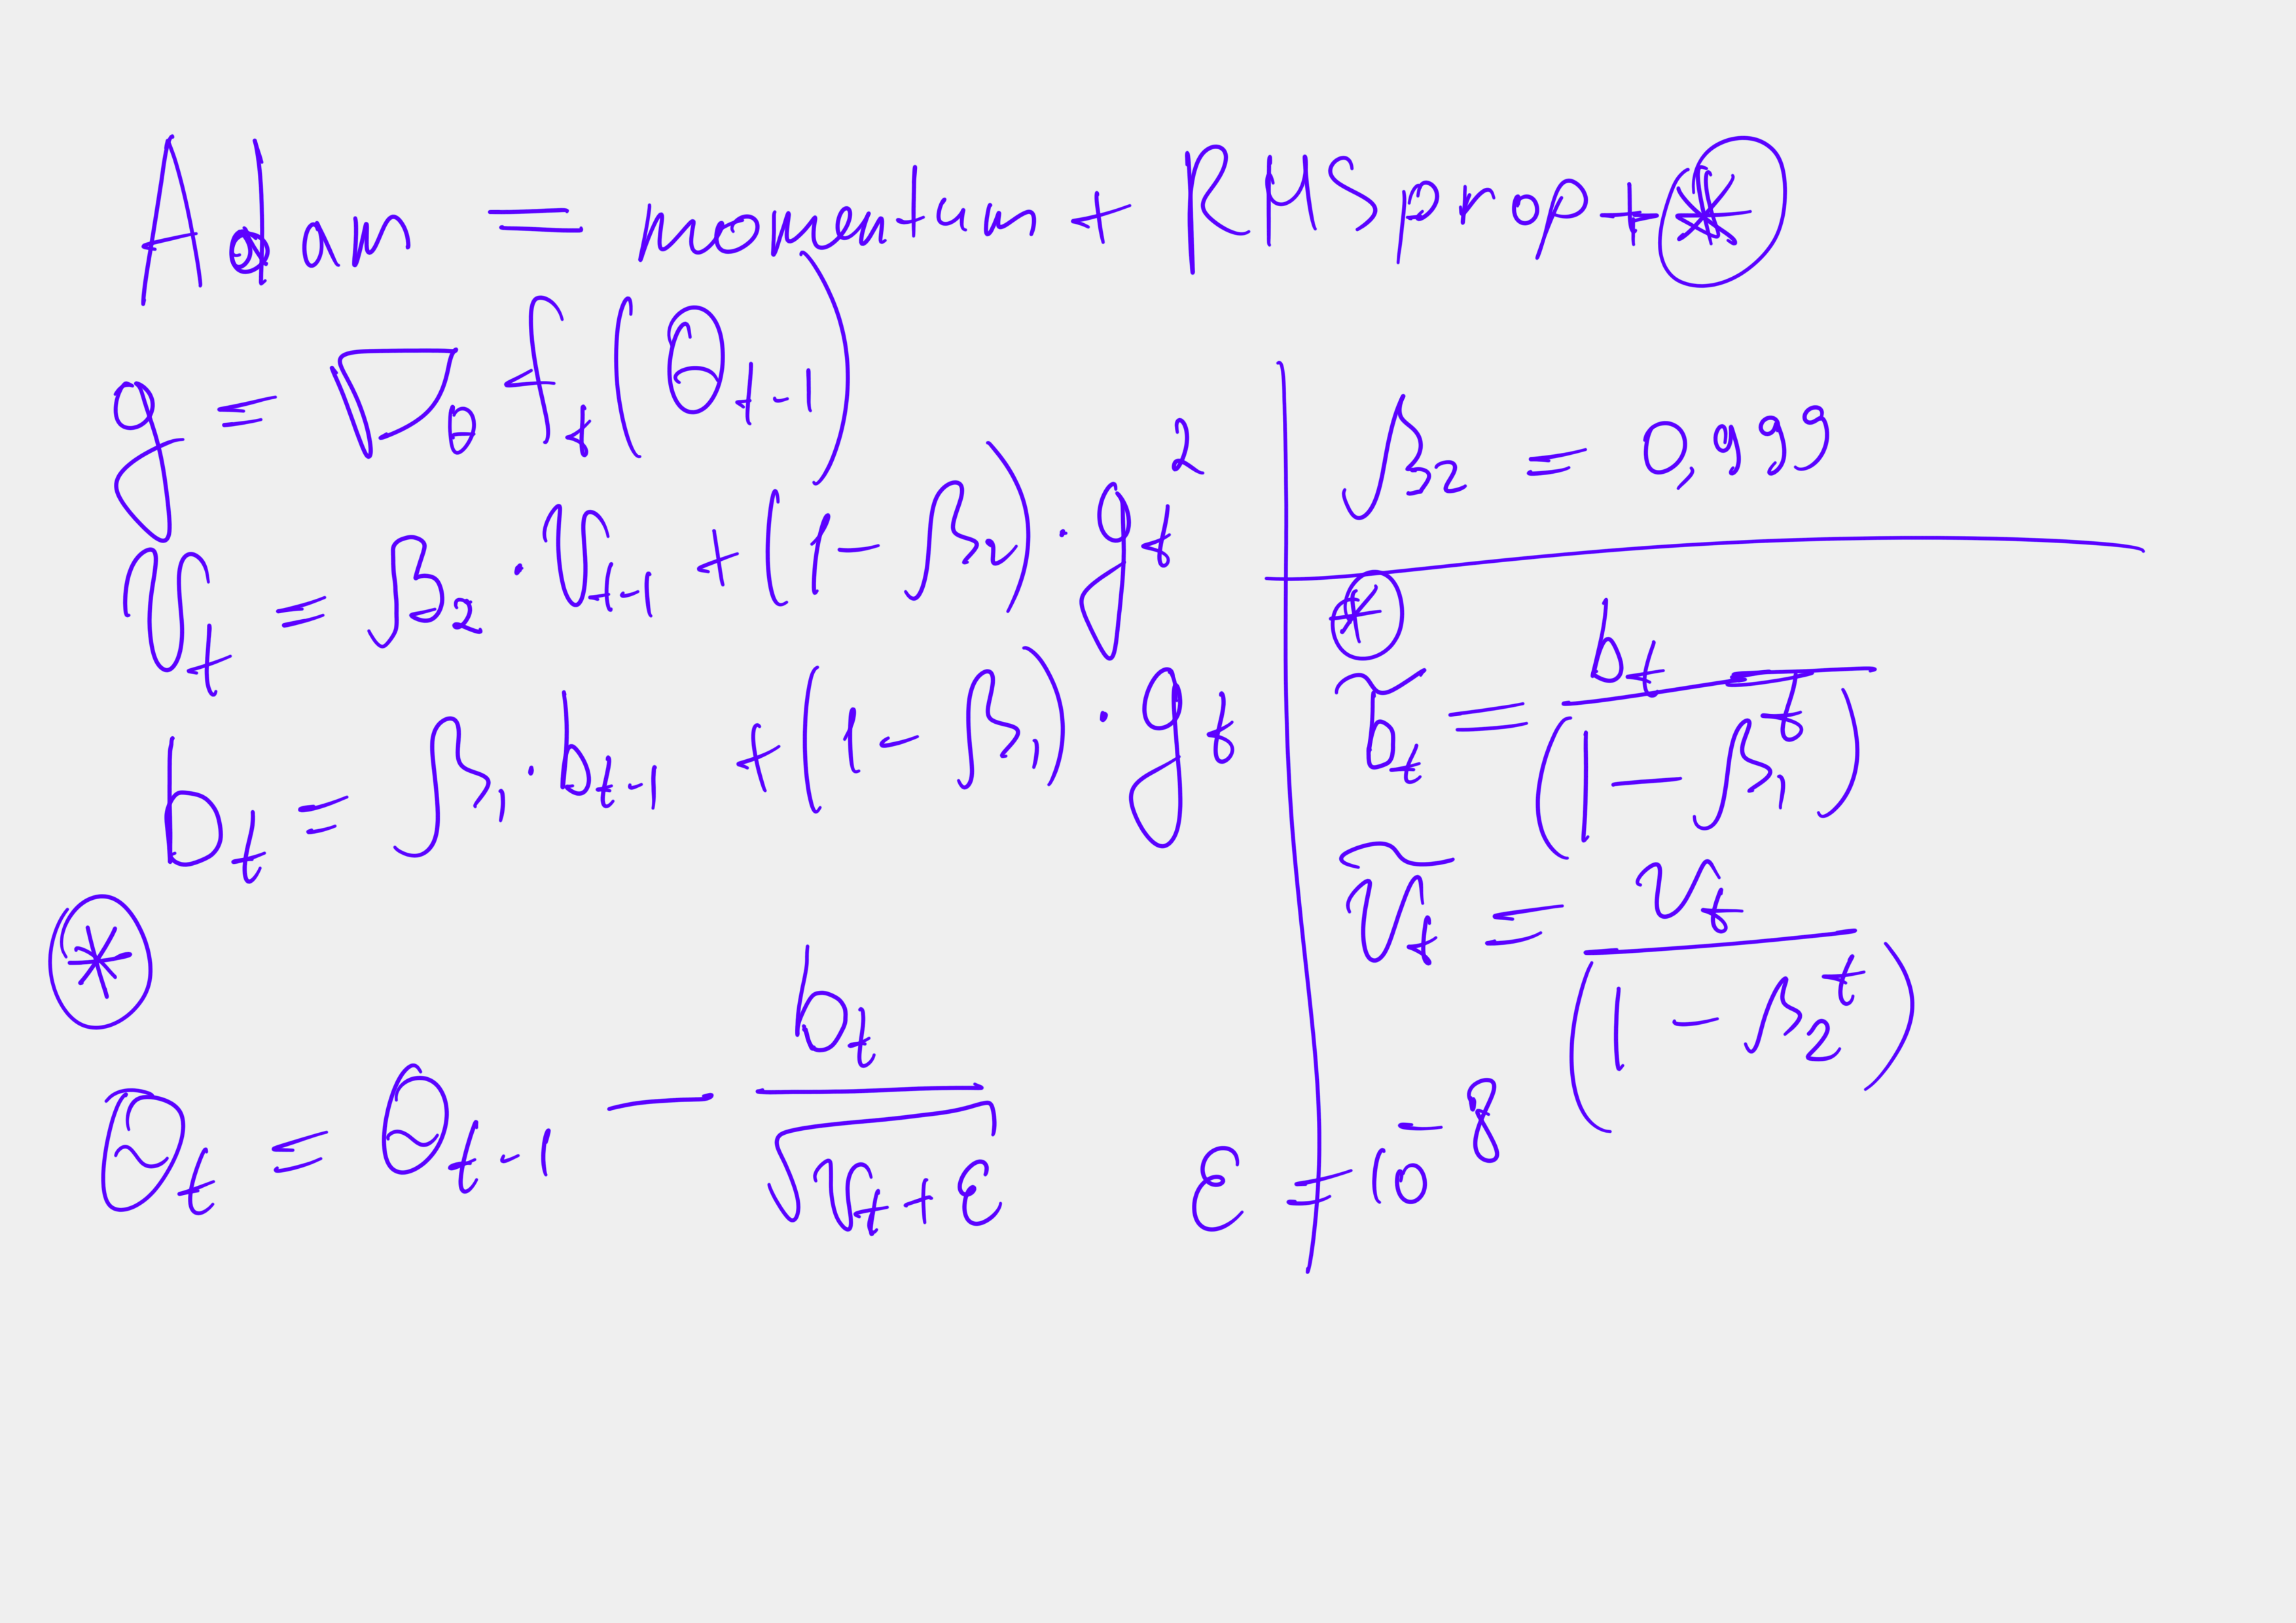 Adam = momentum + RMSprop + ⊛
g = ∇_θ f_t (θ_{t-1})
v_t = β_2 · v_{t-1} + (1 - β_2) · g_t^2
b_t = β_1 · b_{t-1} + (1 - β_1) · g_t
⊛
θ_t = θ_{t-1} - b_t / √(v_t + ε)
ε = 10^{-8}
β_2 = 0,999
⊛
b̃_t = b_t / (1 - β_1^t)
ṽ_t = v_t / (1 - β_2^t)